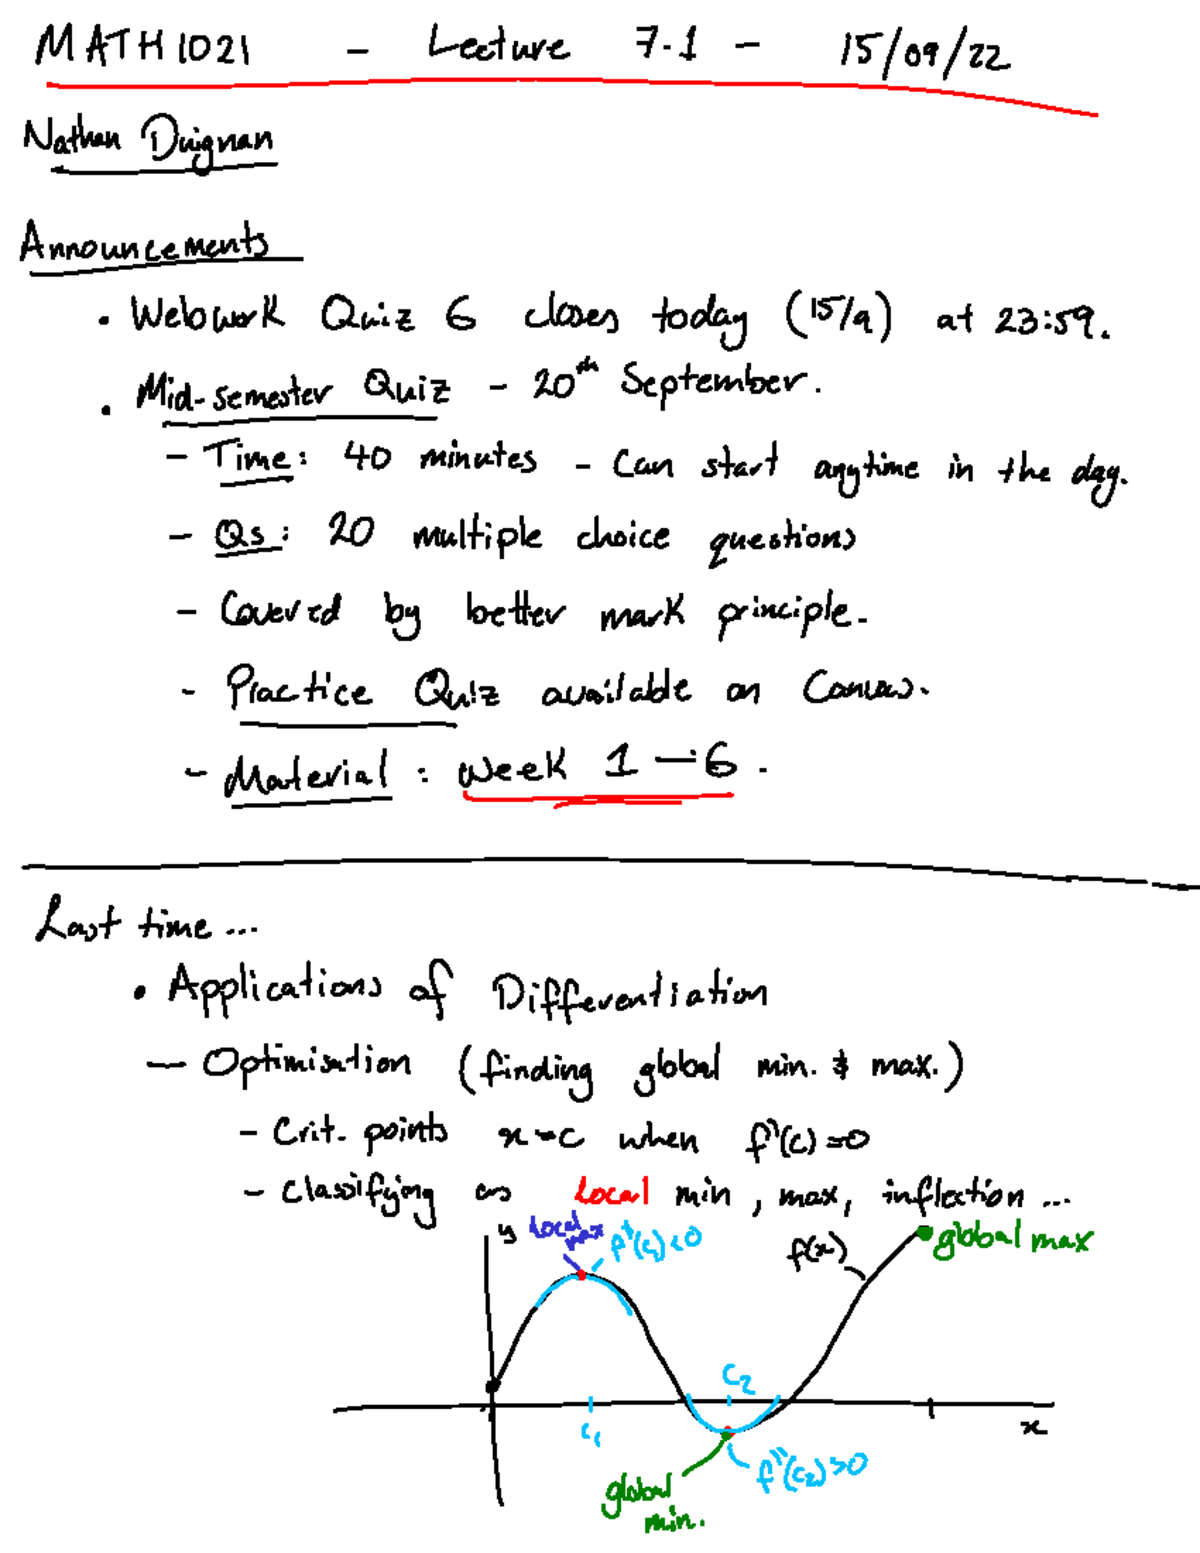 MATH1021 - Lecture 7.1 - 15/09/22
Nathan Duignan
Announcements
• Webwork Quiz 6 closes today (15/9) at 23:59.
• Mid-semester Quiz - 20th September.
- Time: 40 minutes - Can start anytime in the day.
- Qs: 20 multiple choice questions
- Covered by better mark principle.
- Practice Quiz available on Canvas.
- Material: Week 1 - 6.
Last time...
• Applications of Differentiation
- Optimisation (finding global min. & max.)
- Crit. points x=c when f'(c)=0
- Classifying as local min, max, inflection...
y
local max
f''(c₁)<0
f(x)
global max
c₂
c₁
x
f''(c₂)>0
global
min.